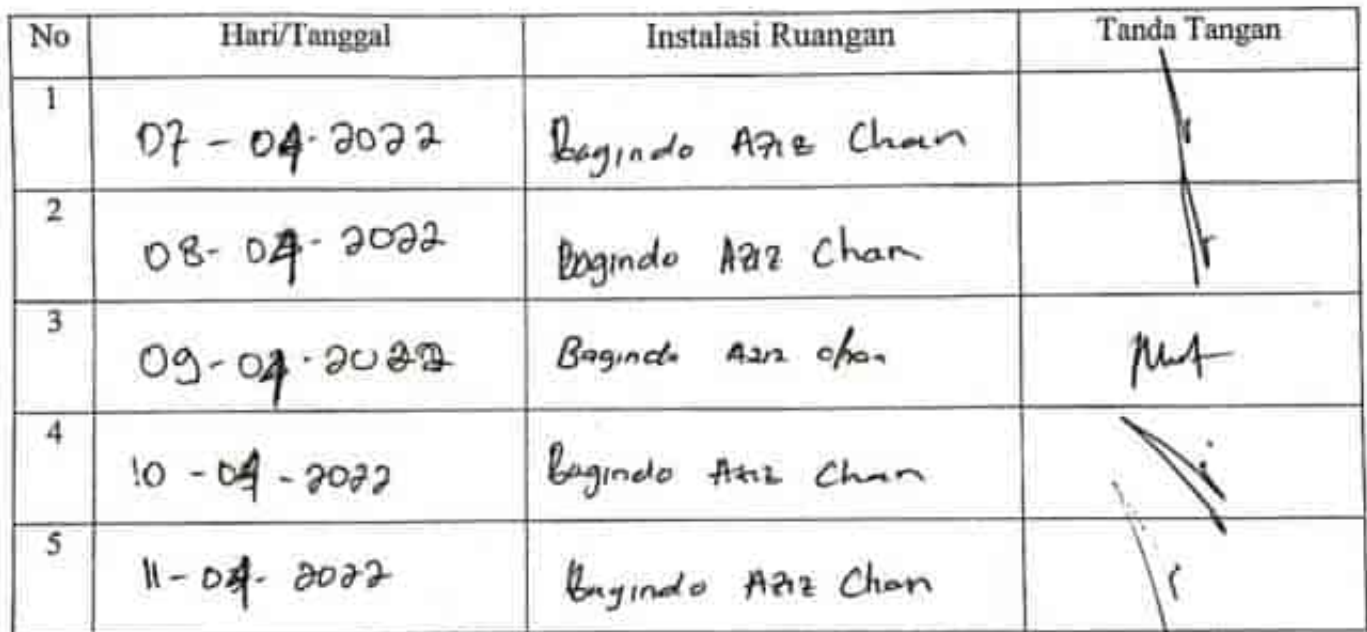 No Hari/Tanggal Instalasi Ruangan Tanda Tangan
1 07 - 04 - 2022 Bagindo Aziz Chan
2 08 - 04 - 2022 Bagindo Aziz Chan
3 09 - 04 - 2022 Bagindo Aziz chan
4 10 - 04 - 2022 Bagindo Aziz Chan
5 11 - 04 - 2022 Bagindo Aziz Chan